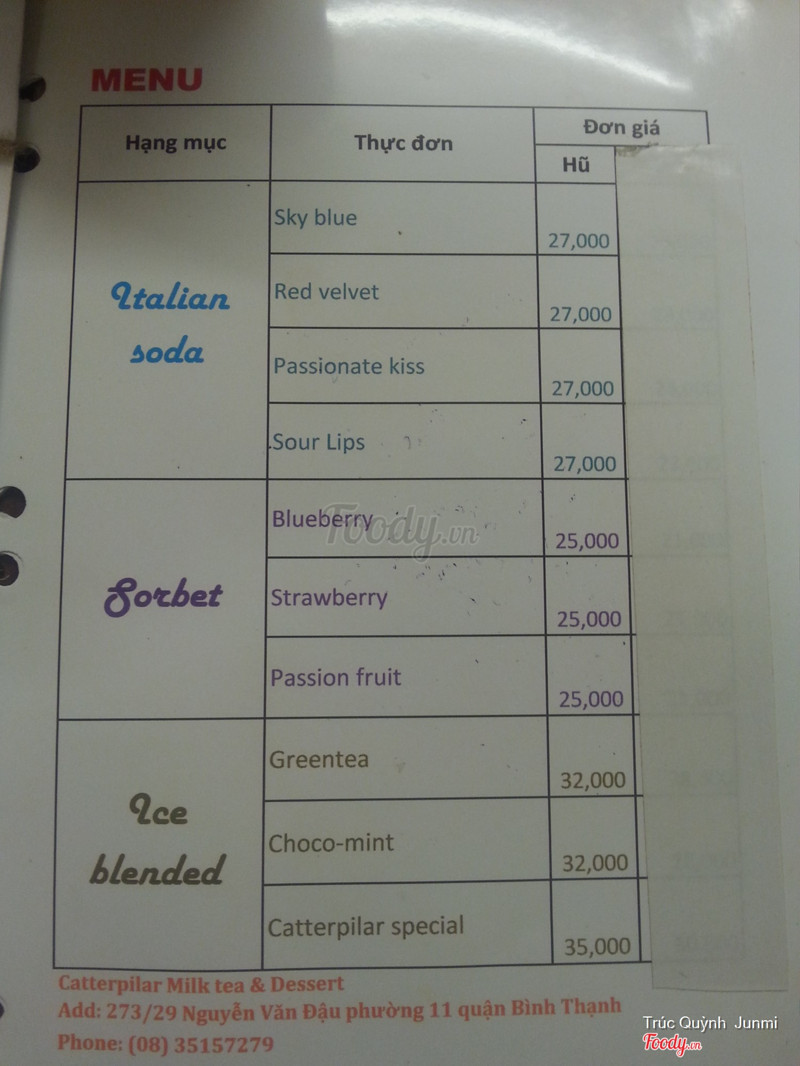 MENU
Hạng mục
Thực đơn
Đơn giá
Hũ
Italian
soda
Sky blue
27,000
Red velvet
27,000
Passionate kiss
27,000
Sour Lips
27,000
Sorbet
Blueberry
25,000
Strawberry
25,000
Passion fruit
25,000
Ice
blended
Greentea
32,000
Choco-mint
32,000
Catterpilar special
35,000
Foody.vn
Catterpilar Milk tea & Dessert
Add: 273/29 Nguyễn Văn Đậu phường 11 quận Bình Thạnh
Phone: (08) 35157279
Trúc Quỳnh Junmi
Foody.vn